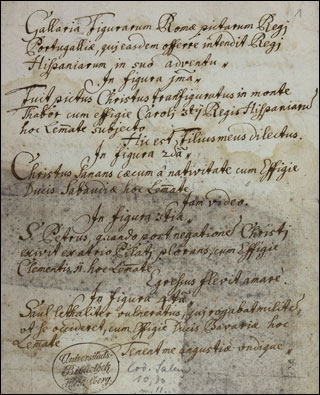 1
Gallaria Figurarum Romæ pictarum Regi
Portugalliæ, qui easdem offerre intendit Regi
Hispaniarum in suo adventu.
In figura 1ma.
Fuit pictus Christus transfiguratus in monte
Thabor cum effigie Caroli 3tij Regis Hispaniaru
hoc Lemate subjecto.
Hic est Filius meus dilectus.
In figura 2da.
Christus Sanans cæcum à nativitate cum Effigie
Ducis Sabaudiæ hoc Lemate.
Jam video.
In figura 3tia.
S. Petrus, quando post negatione Christi
exivit ex atrio Pilati plorans, cum Effigie
Clementis 11. hoc Lemate.
Egressus flevit amarè.
In figura 4ta.
Saul lethaliter vulneratus, qui rogabat milite
ut se occideret, cum Effigie Ducis Bavariæ hoc
Lemate
Tenent me angustiæ undique
Universitäts-
Bibliothek
Heidelberg
Cod. Salem.
10,30